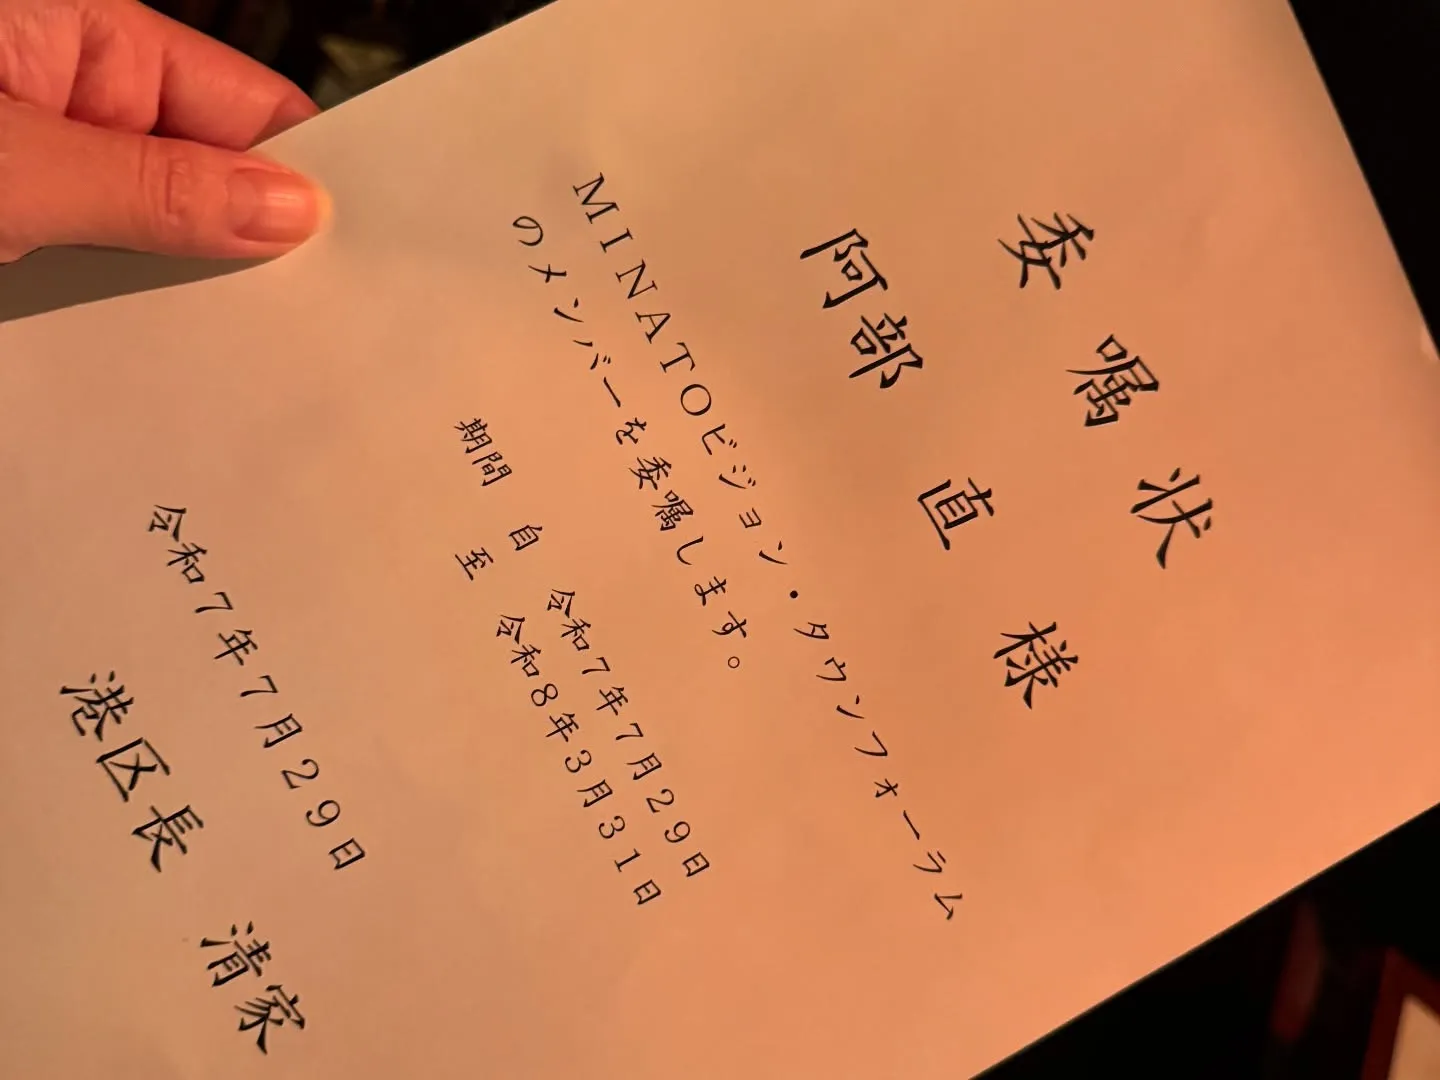 委嘱状
阿部 直 様
MINATOビジョン・タウンフォーラム
のメンバーを委嘱します。
期間 自 令和7年7月29日
至 令和8年3月31日
令和7年7月29日
港区長 清家